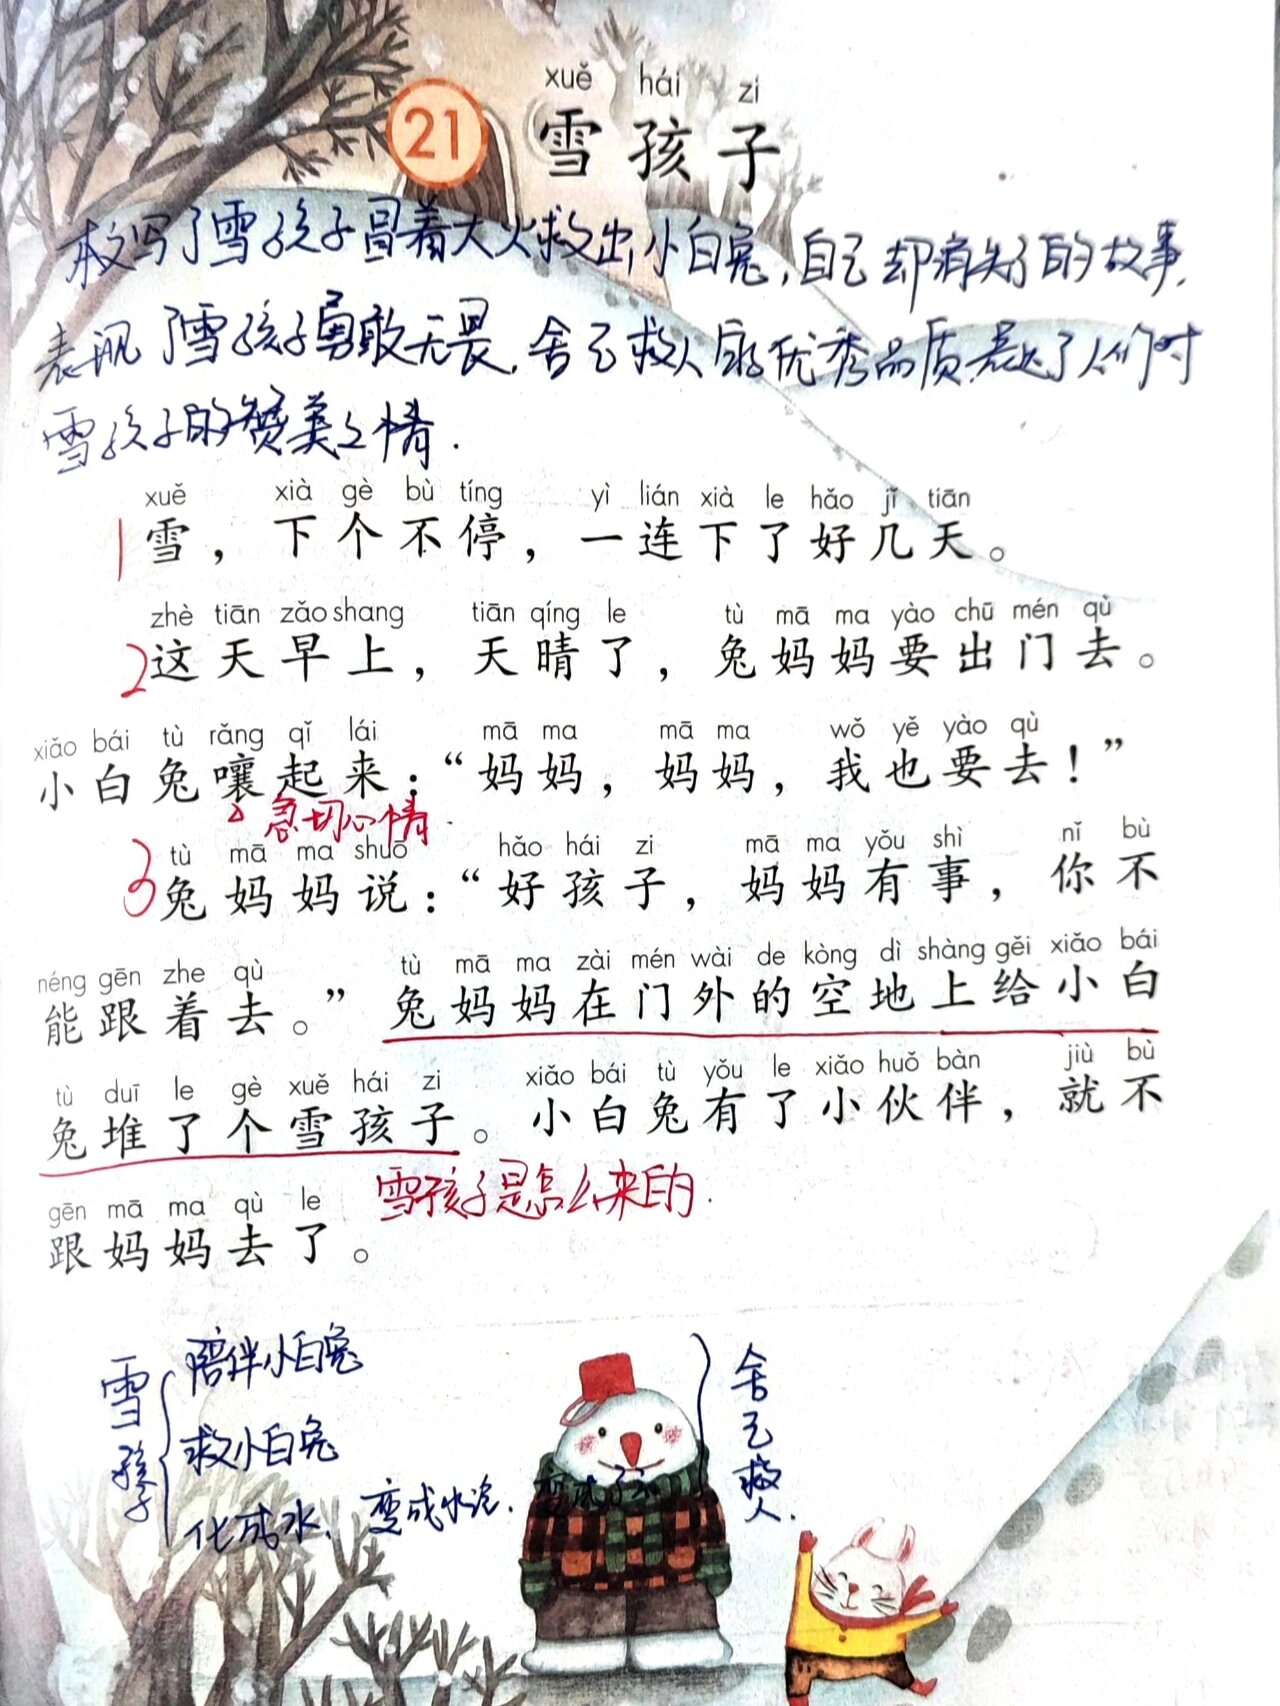 xuě hái zi
21 雪孩子
本文写了雪孩子冒着大火救出小白兔,自己却消失了的故事,
表现了雪孩子勇敢无畏,舍己救人的优秀品质,表达了人们对
雪孩子的赞美之情.
xuě xià gè bù tíng yì lián xià le hǎo jǐ tiān
1 雪，下个不停，一连下了好几天。
zhè tiān zǎo shang tiān qíng le tù mā ma yào chū mén qù
2 这天早上，天晴了，兔妈妈要出门去。
xiǎo bái tù rǎng qǐ lái mā ma mā ma wǒ yě yào qù
小白兔嚷起来：“妈妈，妈妈，我也要去！”
急切心情.
tù mā ma shuō hǎo hái zi mā ma yǒu shì nǐ bù
3 兔妈妈说：“好孩子，妈妈有事，你不
néng gēn zhe qù tù mā ma zài mén wài de kòng dì shàng gěi xiǎo bái
能跟着去。”兔妈妈在门外的空地上给小白
tù duī le gè xuě hái zi xiǎo bái tù yǒu le xiǎo huǒ bàn jiù bù
兔堆了个雪孩子。小白兔有了小伙伴，就不
雪孩子是怎么来的.
gēn mā ma qù le
跟妈妈去了。
雪孩子
陪伴小白兔
救小白兔
化成水、变成水汽.
舍己救人.